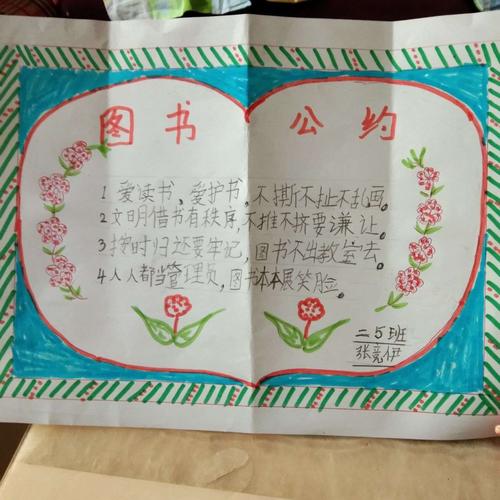 图书公约
1 爱读书、爱护书,不撕不扯不乱画。
2 文明借书有秩序,不推不挤要谦让。
3 按时归还要牢记,图书不出教室去。
4 人人都当管理员,图书本本展笑脸。
二5班
张竞伊